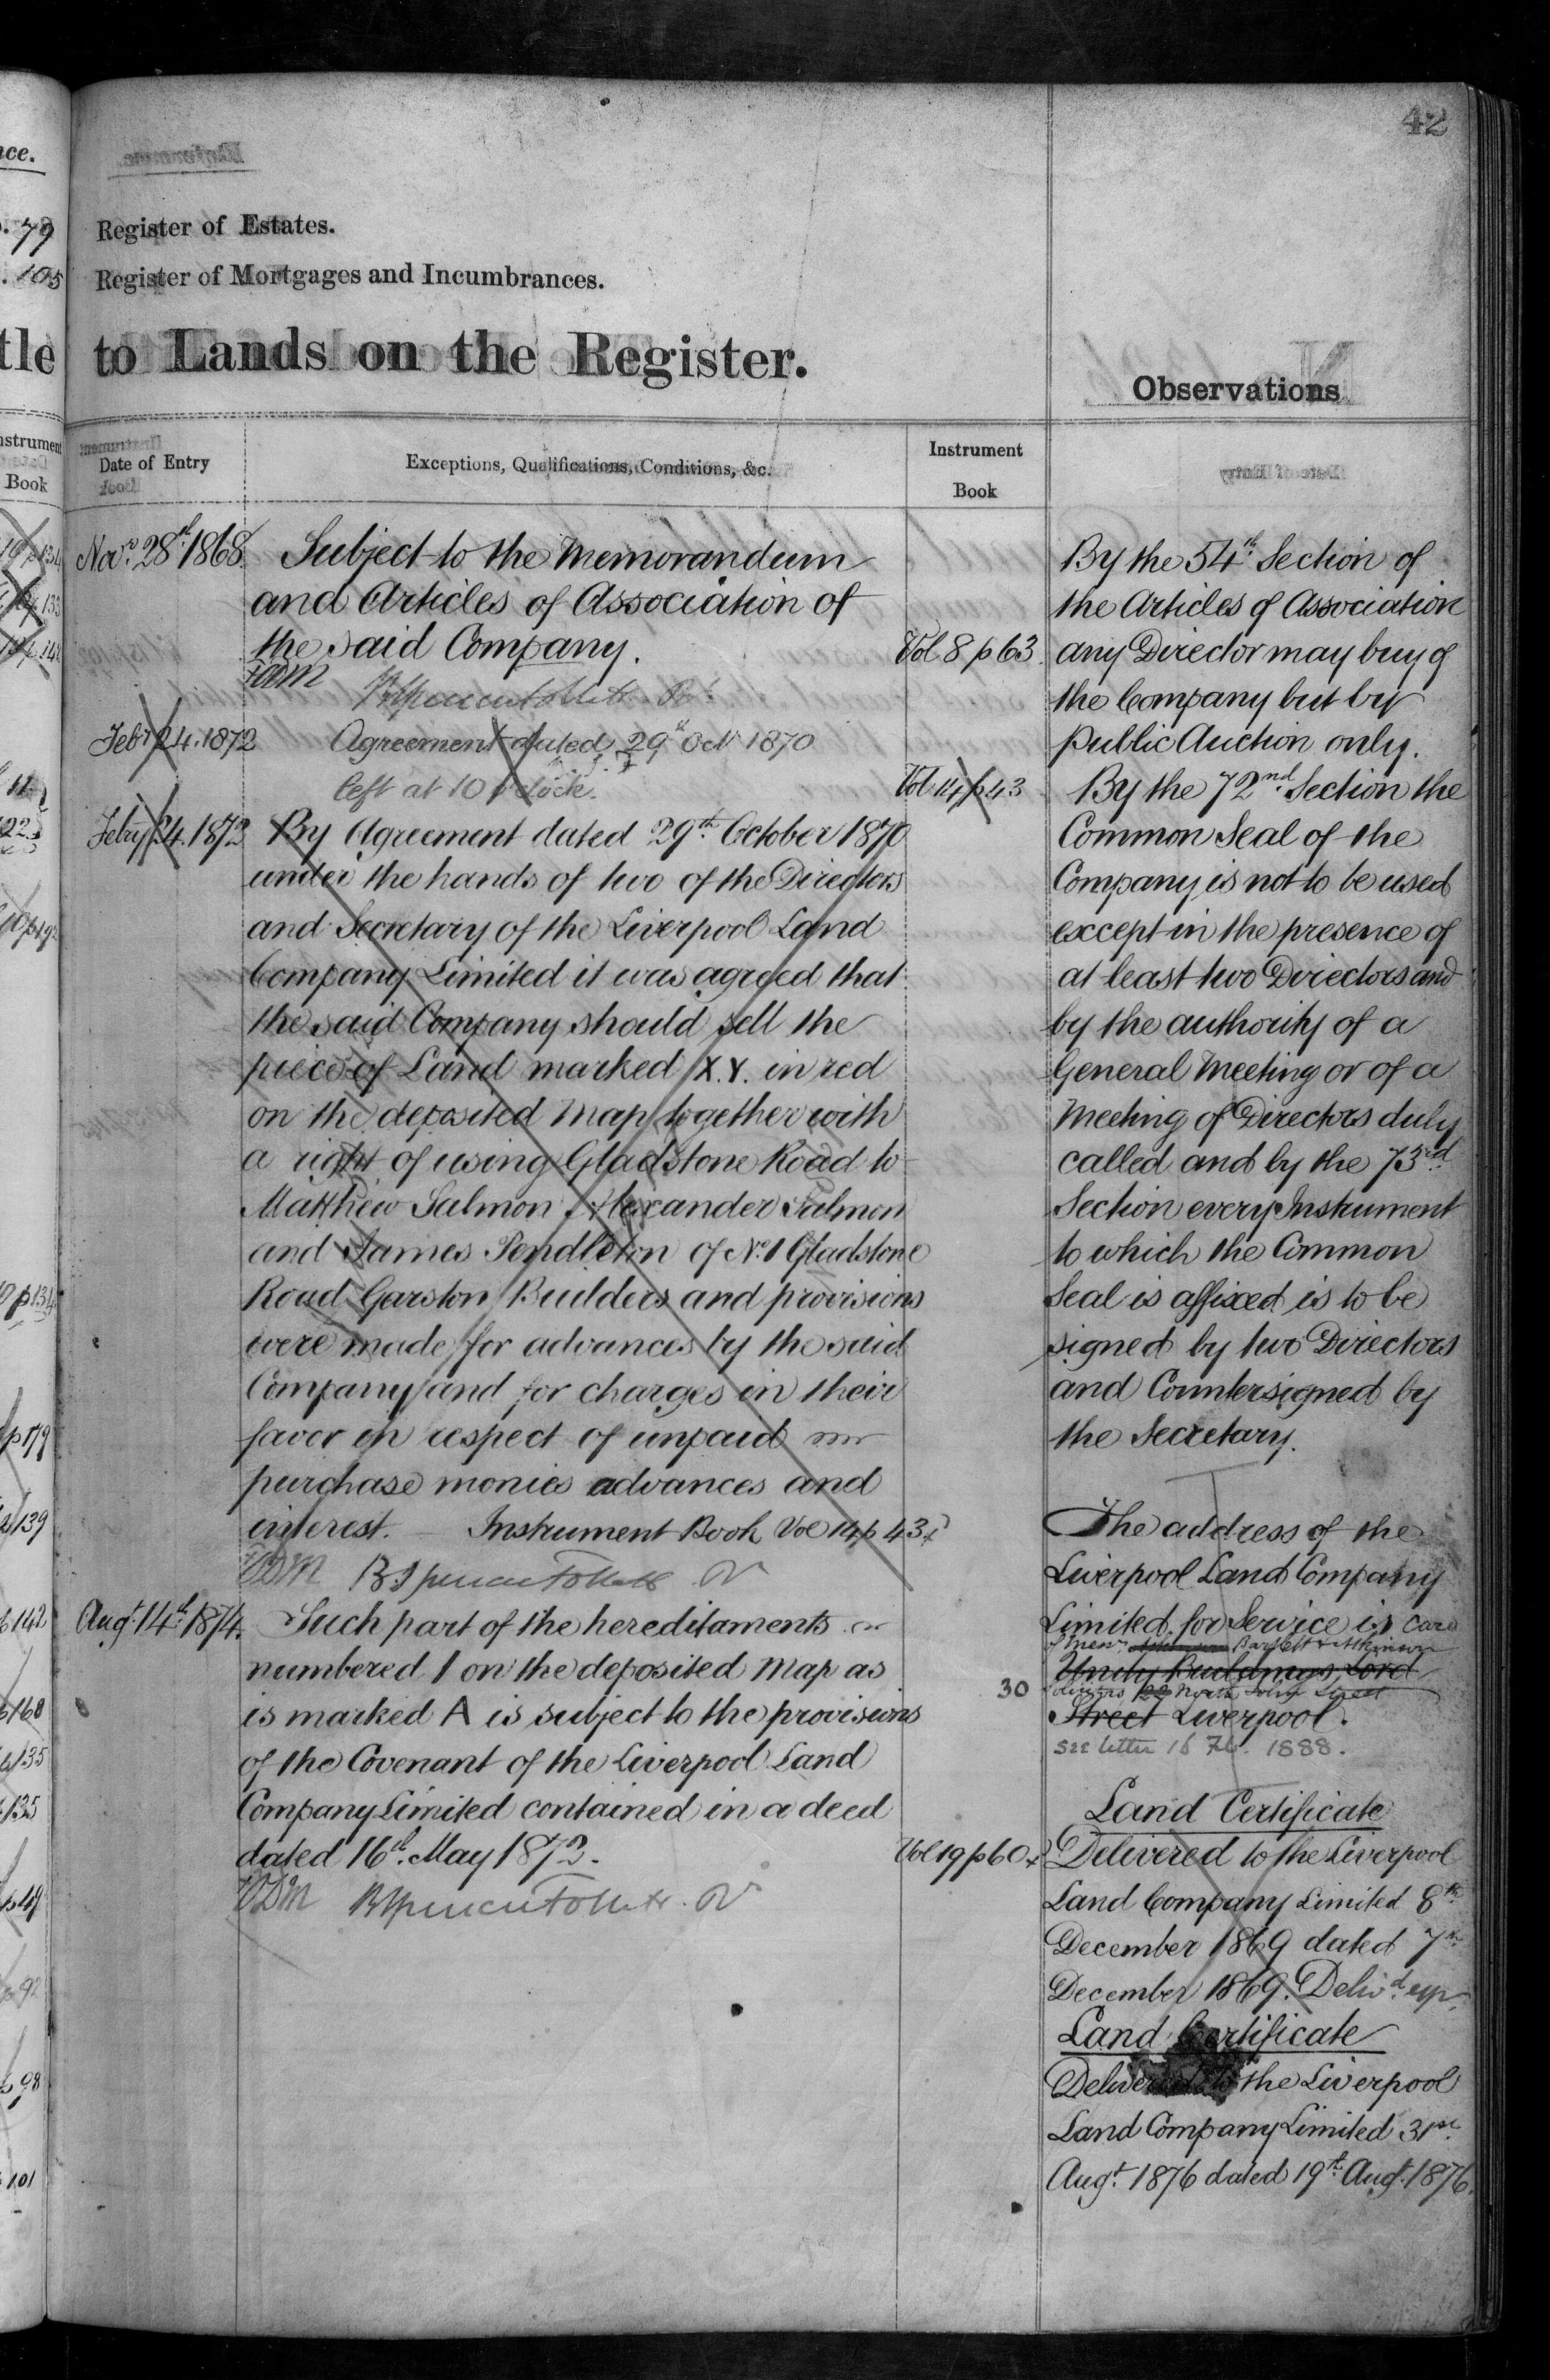 42
Register of Estates.
Register of Mortgages and Incumbrances.
to Lands on the Register.
Observations
Date of Entry
Exceptions, Qualifications, Conditions, &c.
Instrument
Book
Novr. 28th. 1868.
Subject to the Memorandum
and Articles of Association of
the said Company.
Vol. 8 p 63.
Feby 24. 1872
Agreement dated 29th Oct 1870
left at 10 o'clock.
Vol 14 p 43
Feby 24. 1872
By Agreement dated 29th October 1870
under the hands of two of the Directors
and Secretary of the Liverpool Land
Company Limited it was agreed that
the said Company should sell the
piece of Land marked X.Y. in red
on the deposited Map together with
a right of using Gladstone Road to
Matthew Salmon Alexander Salmon
and James Pendleton of No. 1 Gladstone
Road Garston Builders and provisions
were made for advances by the said
Company and for charges in their
favor in respect of unpaid
purchase monies advances and
interest. Instrument Book Vol 14 p 43
Augt. 14th. 1874.
Such part of the hereditaments
numbered 1 on the deposited Map as
is marked A is subject to the provisions
of the Covenant of the Liverpool Land
Company Limited contained in a deed
dated 16th. May 1872.
Vol 19 p 60
By the 54th. Section of
the Articles of Association
any Director may buy of
the Company but by
Public Auction only.
By the 72nd. Section the
Common Seal of the
Company is not to be used
except in the presence of
at least two Directors and
by the authority of a
General Meeting or of a
Meeting of Directors duly
called and by the 73rd.
Section every Instrument
to which the Common
Seal is affixed is to be
signed by two Directors
and Countersigned by
the Secretary.
The address of the
Liverpool Land Company
Limited for Service is care
of Messrs. Bartlett & Atkinson
Unity Buildings, Lord
30 Solicitors 22 North John Street
Street Liverpool.
see letter 16 Feb. 1888.
Land Certificate
Delivered to the Liverpool
Land Company Limited 8th.
December 1869 dated 7th.
December 1869. Delivd. up
Land Certificate
Delivered to the Liverpool
Land Company Limited 31st.
Augt. 1876 dated 19th. Augt. 1876.